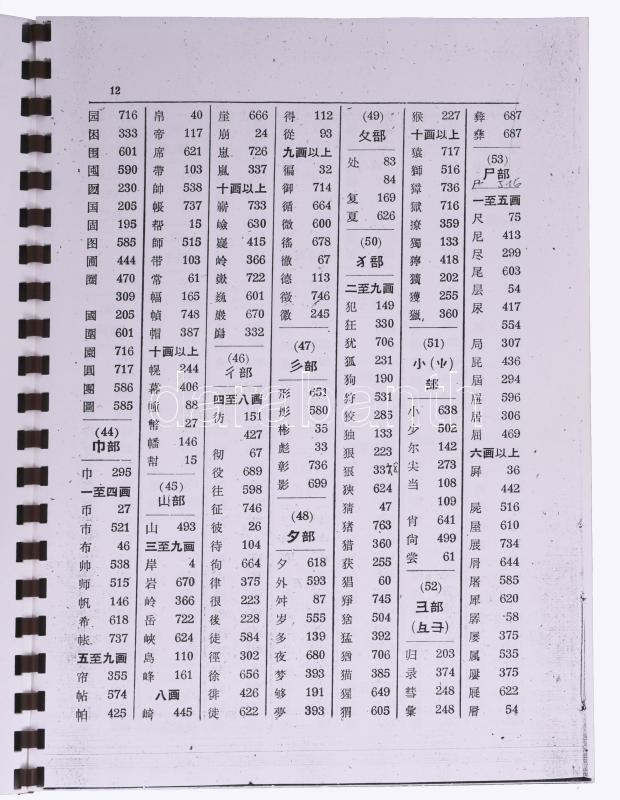 12
园 716
困 333
囤 601
囵 590
囫 230
国 205
固 195
图 585
圃 444
圈 470
309
國 205
圍 601
園 716
圓 717
團 586
圖 585
(44)
巾部
巾 295
一至四画
币 27
市 521
布 46
帅 538
师 515
帆 146
希 618
帐 737
五至九画
帘 355
帖 574
帕 425
帛 40
帝 117
席 621
帶 103
帥 538
帳 737
帮 15
師 515
带 103
常 61
幅 165
幀 748
帽 387
十画以上
幌 244
幕 406
幢 88
幣 27
幡 146
幇 15
(45)
山部
山 493
三至九画
岸 4
岩 670
岭 366
岳 722
峽 624
島 110
峰 161
八画
崎 445
崖 666
崩 24
崽 726
嵐 337
十画以上
嶄 733
嶮 630
嶷 415
嶺 366
嶽 722
巍 601
巖 670
巋 332
(46)
彳部
四至八画
彷 151
427
彻 67
役 689
往 598
征 746
彼 26
待 104
徇 664
律 375
很 223
後 228
徒 584
徑 302
徐 656
徘 426
徙 622
得 112
從 93
九画以上
徧 32
御 714
循 664
微 600
徭 678
徹 67
德 113
徵 746
徽 245
(47)
彡部
形 651
彤 580
彬 35
彪 33
彰 736
影 699
(48)
夕部
夕 618
外 593
舛 87
岁 555
多 139
夜 680
梦 393
够 191
夢 393
(49)
夂部
处 83
84
复 169
夏 626
(50)
犭部
二至九画
犯 149
狂 330
犹 706
狐 231
狗 190
狩 531
狡 285
独 133
狠 223
狼 337
狹 624
猜 47
猪 763
猎 360
获 255
猖 60
猙 745
猞 504
猛 392
猶 706
猫 385
猩 649
猬 605
猴 227
十画以上
猿 717
獅 516
獐 736
獄 716
獠 359
獨 133
獰 418
獾 202
獲 255
獵 360
(51)
小(⺌)部
小 638
少 502
尔 142
尖 273
当 108
109
肖 641
尙 499
尝 61
(52)
彐部
(彑⺕)
归 203
录 374
彗 248
彙 248
彝 687
彜 687
(53)
尸部
尸 516
一至五画
尺 75
尼 413
尽 299
尾 603
层 54
尿 417
554
局 307
屁 436
屆 294
居 306
屈 469
六画以上
屏 36
442
屍 516
屋 610
展 734
屑 644
屠 585
犀 620
屡 375
属 535
屢 375
層 54